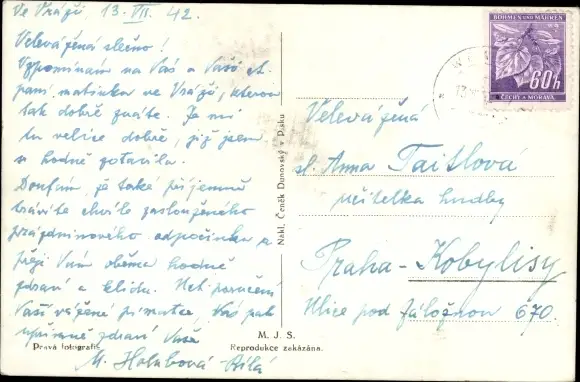 Ve Vráži, 13. VII. 42.
Velevážená slečno!
Vzpomínám na Vás a Vaši
paní matinku ve Vráži, kterou
tak dobře znáte. Je mi
tu velice dobře, již jsem
se hodně zotavila.
Doufám, že také příjemně
trávíte chvíle zaslouženého
prázdninového odpočinku a
přeji Vám oběma hodně
zdraví a klidu. Ruč poručení
Vaší vážené p. matce, Vás pak
upřímně zdraví Vaše
M. Holubová-Bílá
Pravá fotografie
M. J. S.
Reprodukce zakázána.
Nákl. Čeněk Dunovský v Písku
BÖHMEN UND MÄHREN
60h
ČECHY A MORAVA
Velevážená
sl. Anna Taitlová
učitelka hudby
Praha-Kobylisy
Ulice pod Záložnou 670.